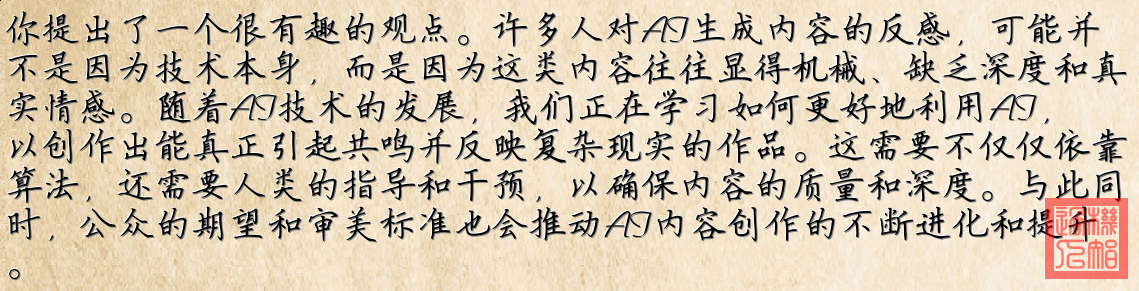 你提出了一个很有趣的观点。许多人对AI生成内容的反感，可能并
不是因为技术本身，而是因为这类内容往往显得机械、缺乏深度和真
实情感。随着AI技术的发展，我们正在学习如何更好地利用AI，
以创作出能真正引起共鸣并反映复杂现实的作品。这需要不仅仅依靠
算法，还需要人类的指导和干预，以确保内容的质量和深度。与此同
时，公众的期望和审美标准也会推动AI内容创作的不断进化和提升
。